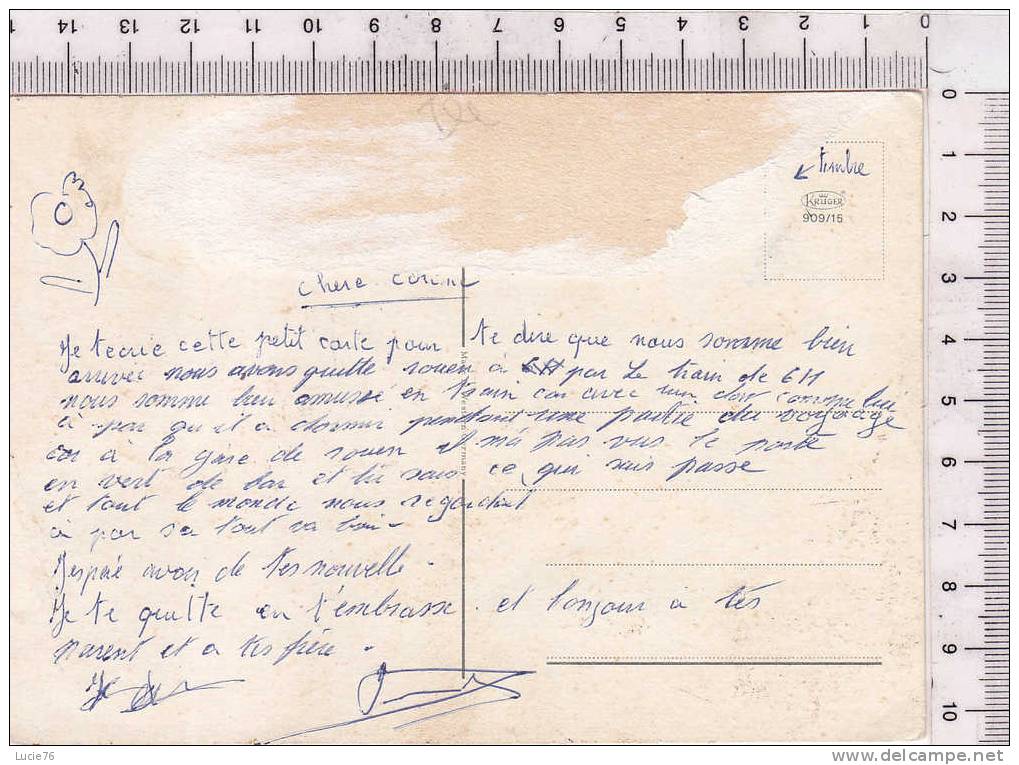 timbre
KRÜGER
909/15
chere corine
Je t'ecrie cette petit carte pour te dire que nous somme bien
arrivée nous avons quitte rouen à 6H par Le train de 6H
nous somme bien amusé en train car avec un
à par qu'il a dormir pendant une partie du voyage
car à la gare de rouen il m'a pas vus le porte
en vert de bar et tu sais ce qui suis passe
et tout le monde nous regardait
à par sa tout va bien -
J'espéré avoir de tes nouvelle .
Je te quitte en t'embrasse . et bonjour à tes
parent et a tes frère .
Lucie76
14 13 12 11 10 9 8 7 6 5 4 3 2 1 0
0
1
2
3
4
5
6
7
8
9
10